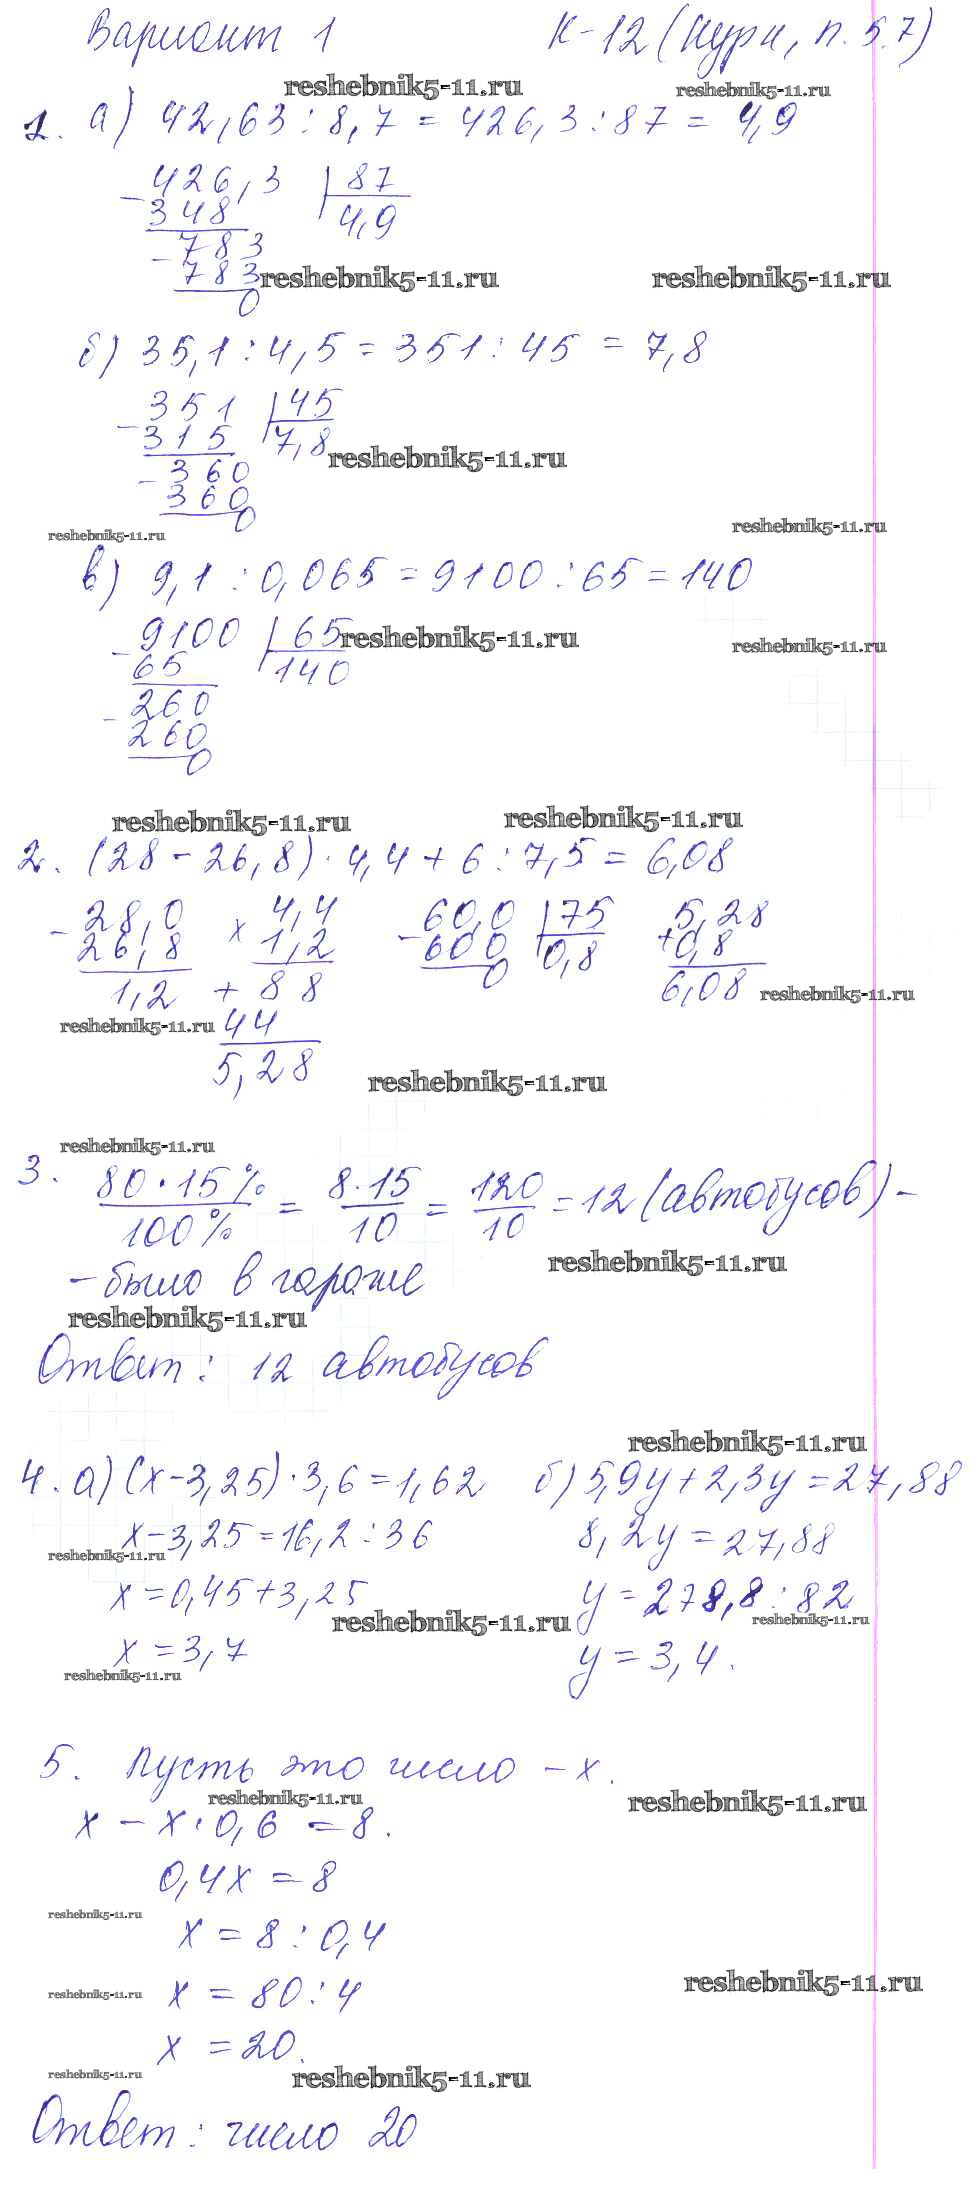 Вариант 1 К-12 (Нурк, п. 5.7)
reshebnik5-11.ru reshebnik5-11.ru
1. а) 42,63 : 8,7 = 426,3 : 87 = 4,9
- 426,3 | 87
348 4,9
- 783
783 reshebnik5-11.ru reshebnik5-11.ru
0
б) 35,1 : 4,5 = 351 : 45 = 7,8
- 351 | 45
315 7,8 reshebnik5-11.ru
- 360
360
0
reshebnik5-11.ru reshebnik5-11.ru
в) 9,1 : 0,065 = 9100 : 65 = 140
- 9100 | 65 reshebnik5-11.ru reshebnik5-11.ru
65 140
- 260
260
0
reshebnik5-11.ru reshebnik5-11.ru
2. (28 - 26,8) · 4,4 + 6 : 7,5 = 6,08
- 28,0 × 4,4 - 60,0 | 75 + 5,28
26,8 1,2 600 0,8 0,8
1,2 + 88 0 6,08 reshebnik5-11.ru
reshebnik5-11.ru 44
5,28 reshebnik5-11.ru
reshebnik5-11.ru
3. 80 · 15% / 100% = 8 · 15 / 10 = 120 / 10 = 12 (автобусов) -
reshebnik5-11.ru
- было в гараже
reshebnik5-11.ru
Ответ: 12 автобусов
reshebnik5-11.ru
4. а) (х - 3,25) · 3,6 = 1,62 б) 5,9у + 2,3у = 27,88
х - 3,25 = 16,2 : 36 8,2у = 27,88
reshebnik5-11.ru
х = 0,45 + 3,25 у = 278,8 : 82
reshebnik5-11.ru reshebnik5-11.ru
х = 3,7 у = 3,4.
reshebnik5-11.ru
5. Пусть это число - х.
reshebnik5-11.ru reshebnik5-11.ru
х - х · 0,6 = 8.
0,4х = 8
reshebnik5-11.ru
х = 8 : 0,4
reshebnik5-11.ru
reshebnik5-11.ru х = 80 : 4
х = 20.
reshebnik5-11.ru reshebnik5-11.ru
Ответ: число 20